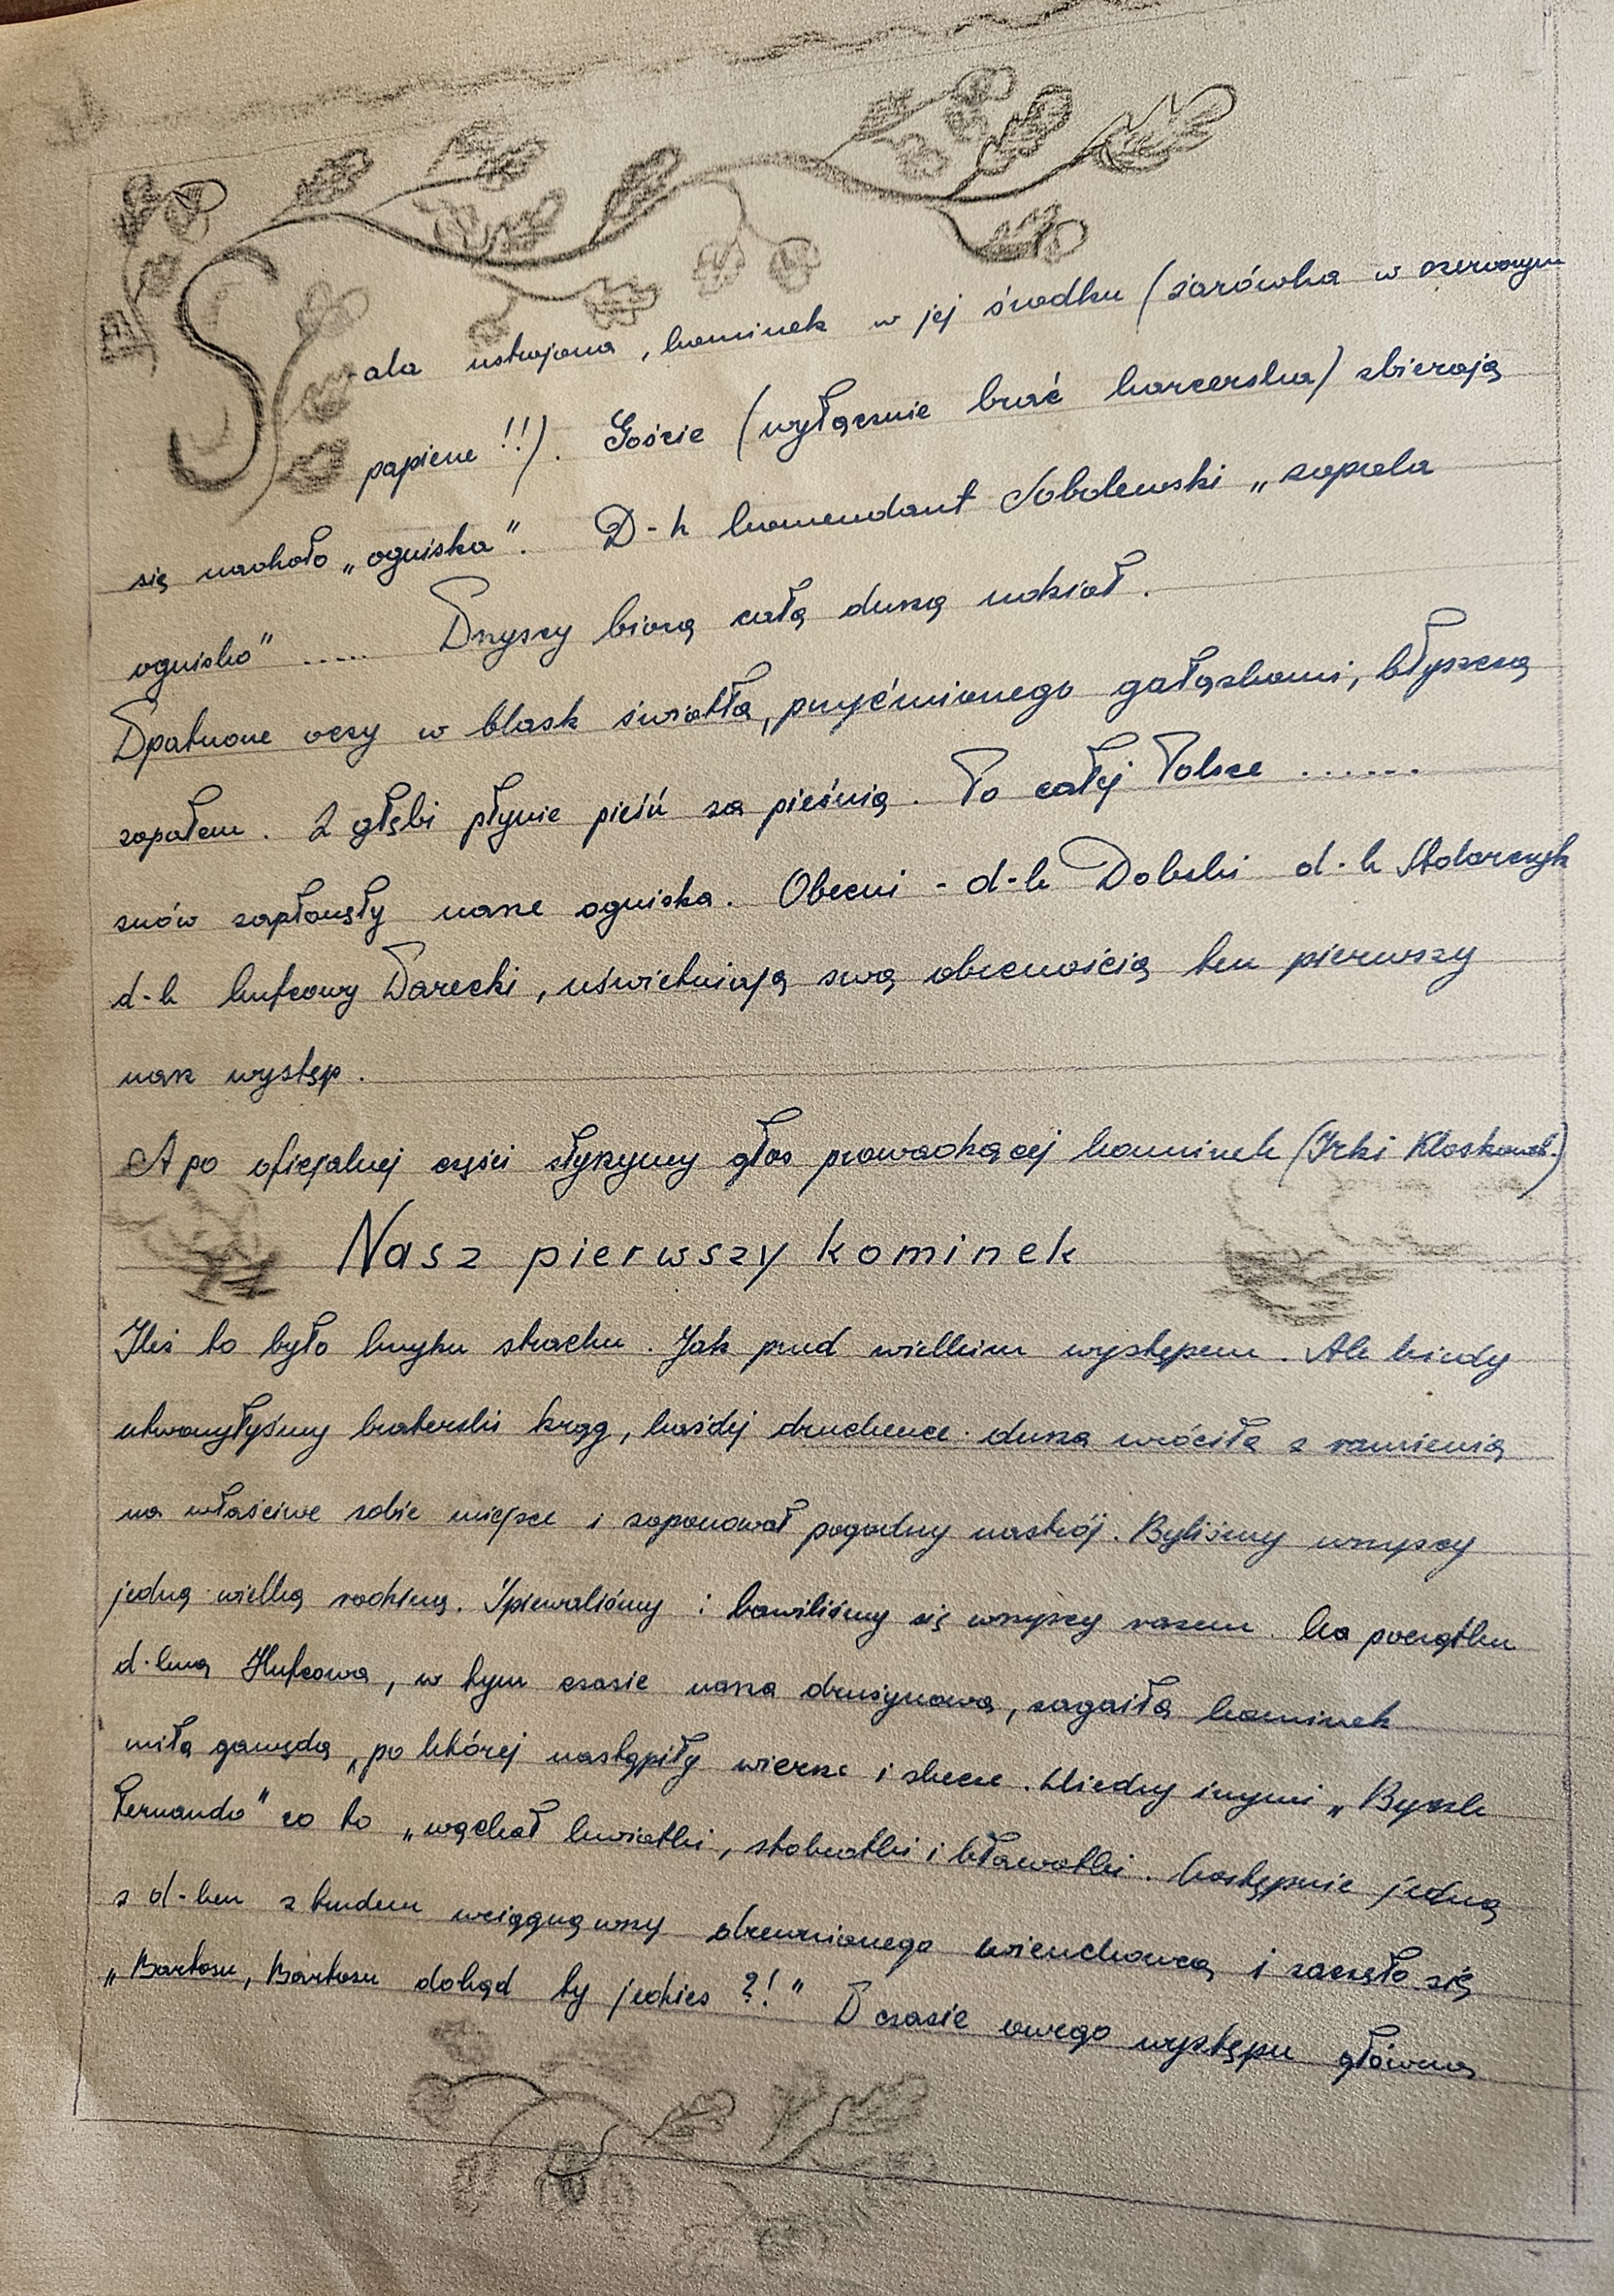 Sala ustrojona, kominek w jej środku (żarówka w czerwonym
papierze!!). Goście (wyłącznie brać harcerska) zbierają
się naokoło „ogniska”. D-h komendant Sobolewski „zapala
ognisko” ..... Wszyscy biorą całą duszą udział.
Wpatrzone oczy w blask światła, przyćmionego gałązkami, błyszczą
zapałem. Z głębi płynie pieśń za pieśnią. Po całej Polsce .......
znów zapłonęły nasze ogniska. Obecni - d-h Dobski d-h Stolarczyk
d-h hufcowy Darecki, uświetniają swą obecnością ten pierwszy
nasz występ.
A po oficjalnej części słyszymy głos prowadzącej kominek (Irki Kloskowsk.)
Nasz pierwszy kominek
Ileż to było krzyku strachu. Jak przed wielkim występem. Ale kiedy
utworzyłyśmy braterski krąg, każdej druchence dusza wróciła z ramienia
na właściwe sobie miejsce i zapanował pogodny nastrój. Byliśmy wszyscy
jedną wielką rodziną. Śpiewaliśmy i bawiliśmy się wszyscy razem. Na początku
d-hna Hufcowa, w tym czasie nasza drużynowa, zagaiła kominek
miłą gawędą, po której nastąpiły wiersze i skecze. Miedzy innymi „Byczek
Fernando” co to „wąchał kwiatki, stokrotki i bławatki. Następnie jedna
z d-hen z trudem wciągnąwszy drewnianego wierzchowca i zaczęło się
„Bartoszu, Bartoszu dokąd ty jedziesz ?!” W czasie owego występu główna